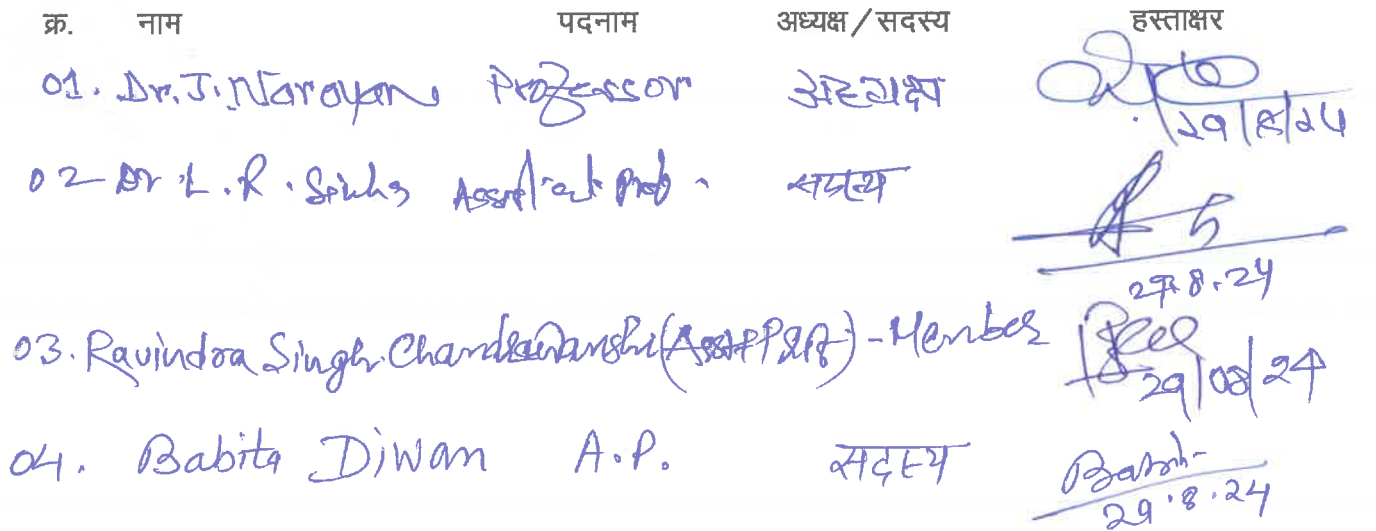 क्र. नाम पदनाम अध्यक्ष/सदस्य हस्ताक्षर
01. Dr. J. Narayan Professor अध्यक्ष
29/8/24
02 Dr. L. R. Sinha सदस्य
29.8.24
03. Ravindra Singh Chandrawanshi (Asst Prof) - Member
29/08/24
04. Babita Diwan A.P. सदस्य
29.8.24